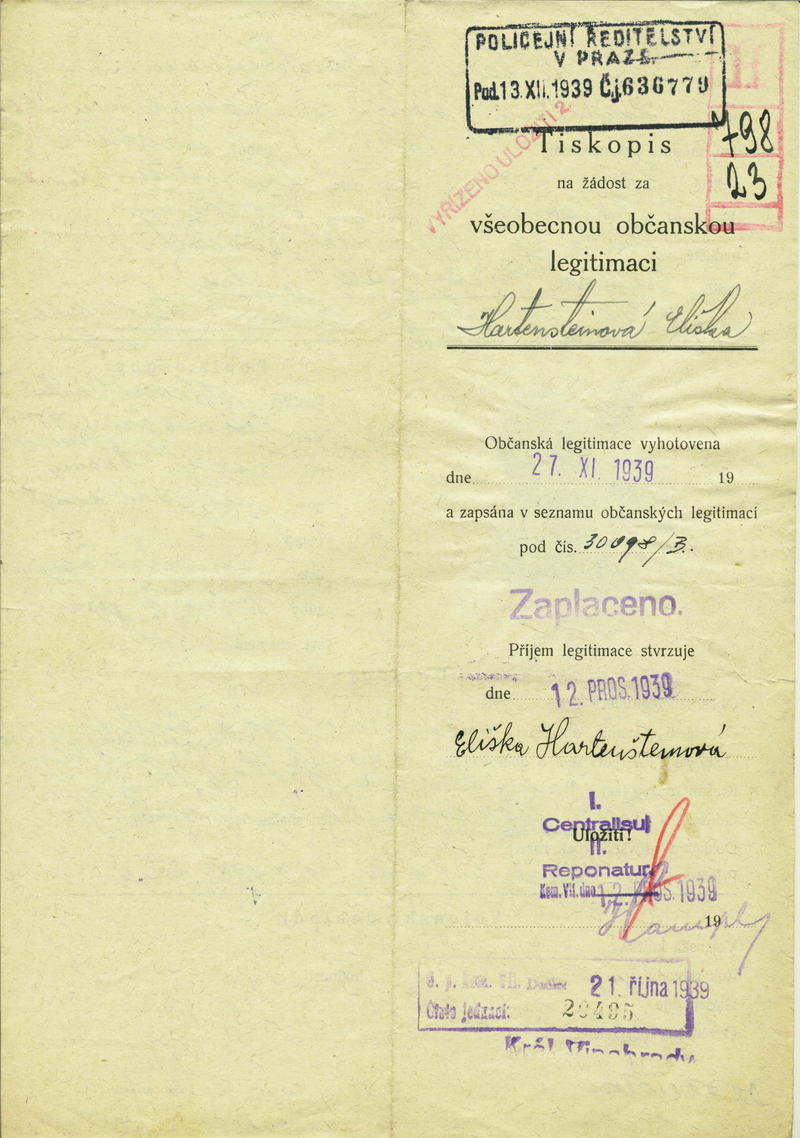 POLICEJNÍ ŘEDITELSTVÍ
V PRAZE
Pod. 13.XII.1939 Č.j. 636779
VYŘÍZENO ULOŽITI 2
798
23
Tiskopis
na žádost za
všeobecnou občanskou
legitimaci
Hartensteinová Eliška
Občanská legitimace vyhotovena
dne 27. XI. 1939 19
a zapsána v seznamu občanských legitimací
pod čís. 30098/B.
Zaplaceno.
Příjem legitimace stvrzuje
dne 12. PROS. 1939
Eliška Hartenšteinová
I.
Centralisuj
Uložiti!
II.
Reponatur
Kom. VII. dne 12. PROS. 1939
19
21. října 1939
Číslo jednací: 20495
Král. Vinohrady